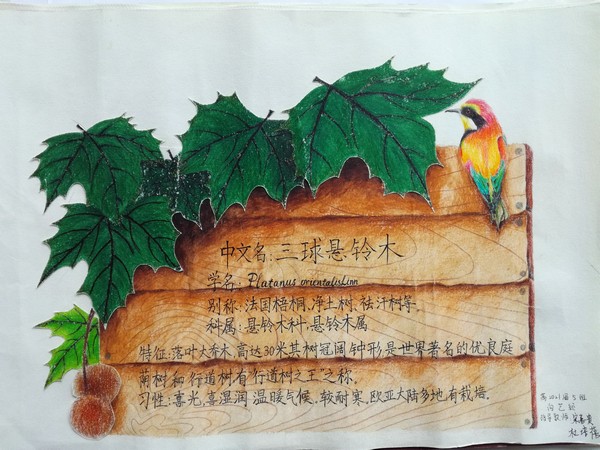 中文名:三球悬铃木
学名:Platanus orientalisLinn
别称:法国梧桐,净土树、祛汗树等。
科属:悬铃木科,悬铃木属
特征:落叶大乔木,高达30米其树冠阔钟形,是世界著名的优良庭
荫树和行道树,有“行道树之王”之称。
习性:喜光,喜湿润温暖气候、较耐寒。欧亚大陆多地有栽培。